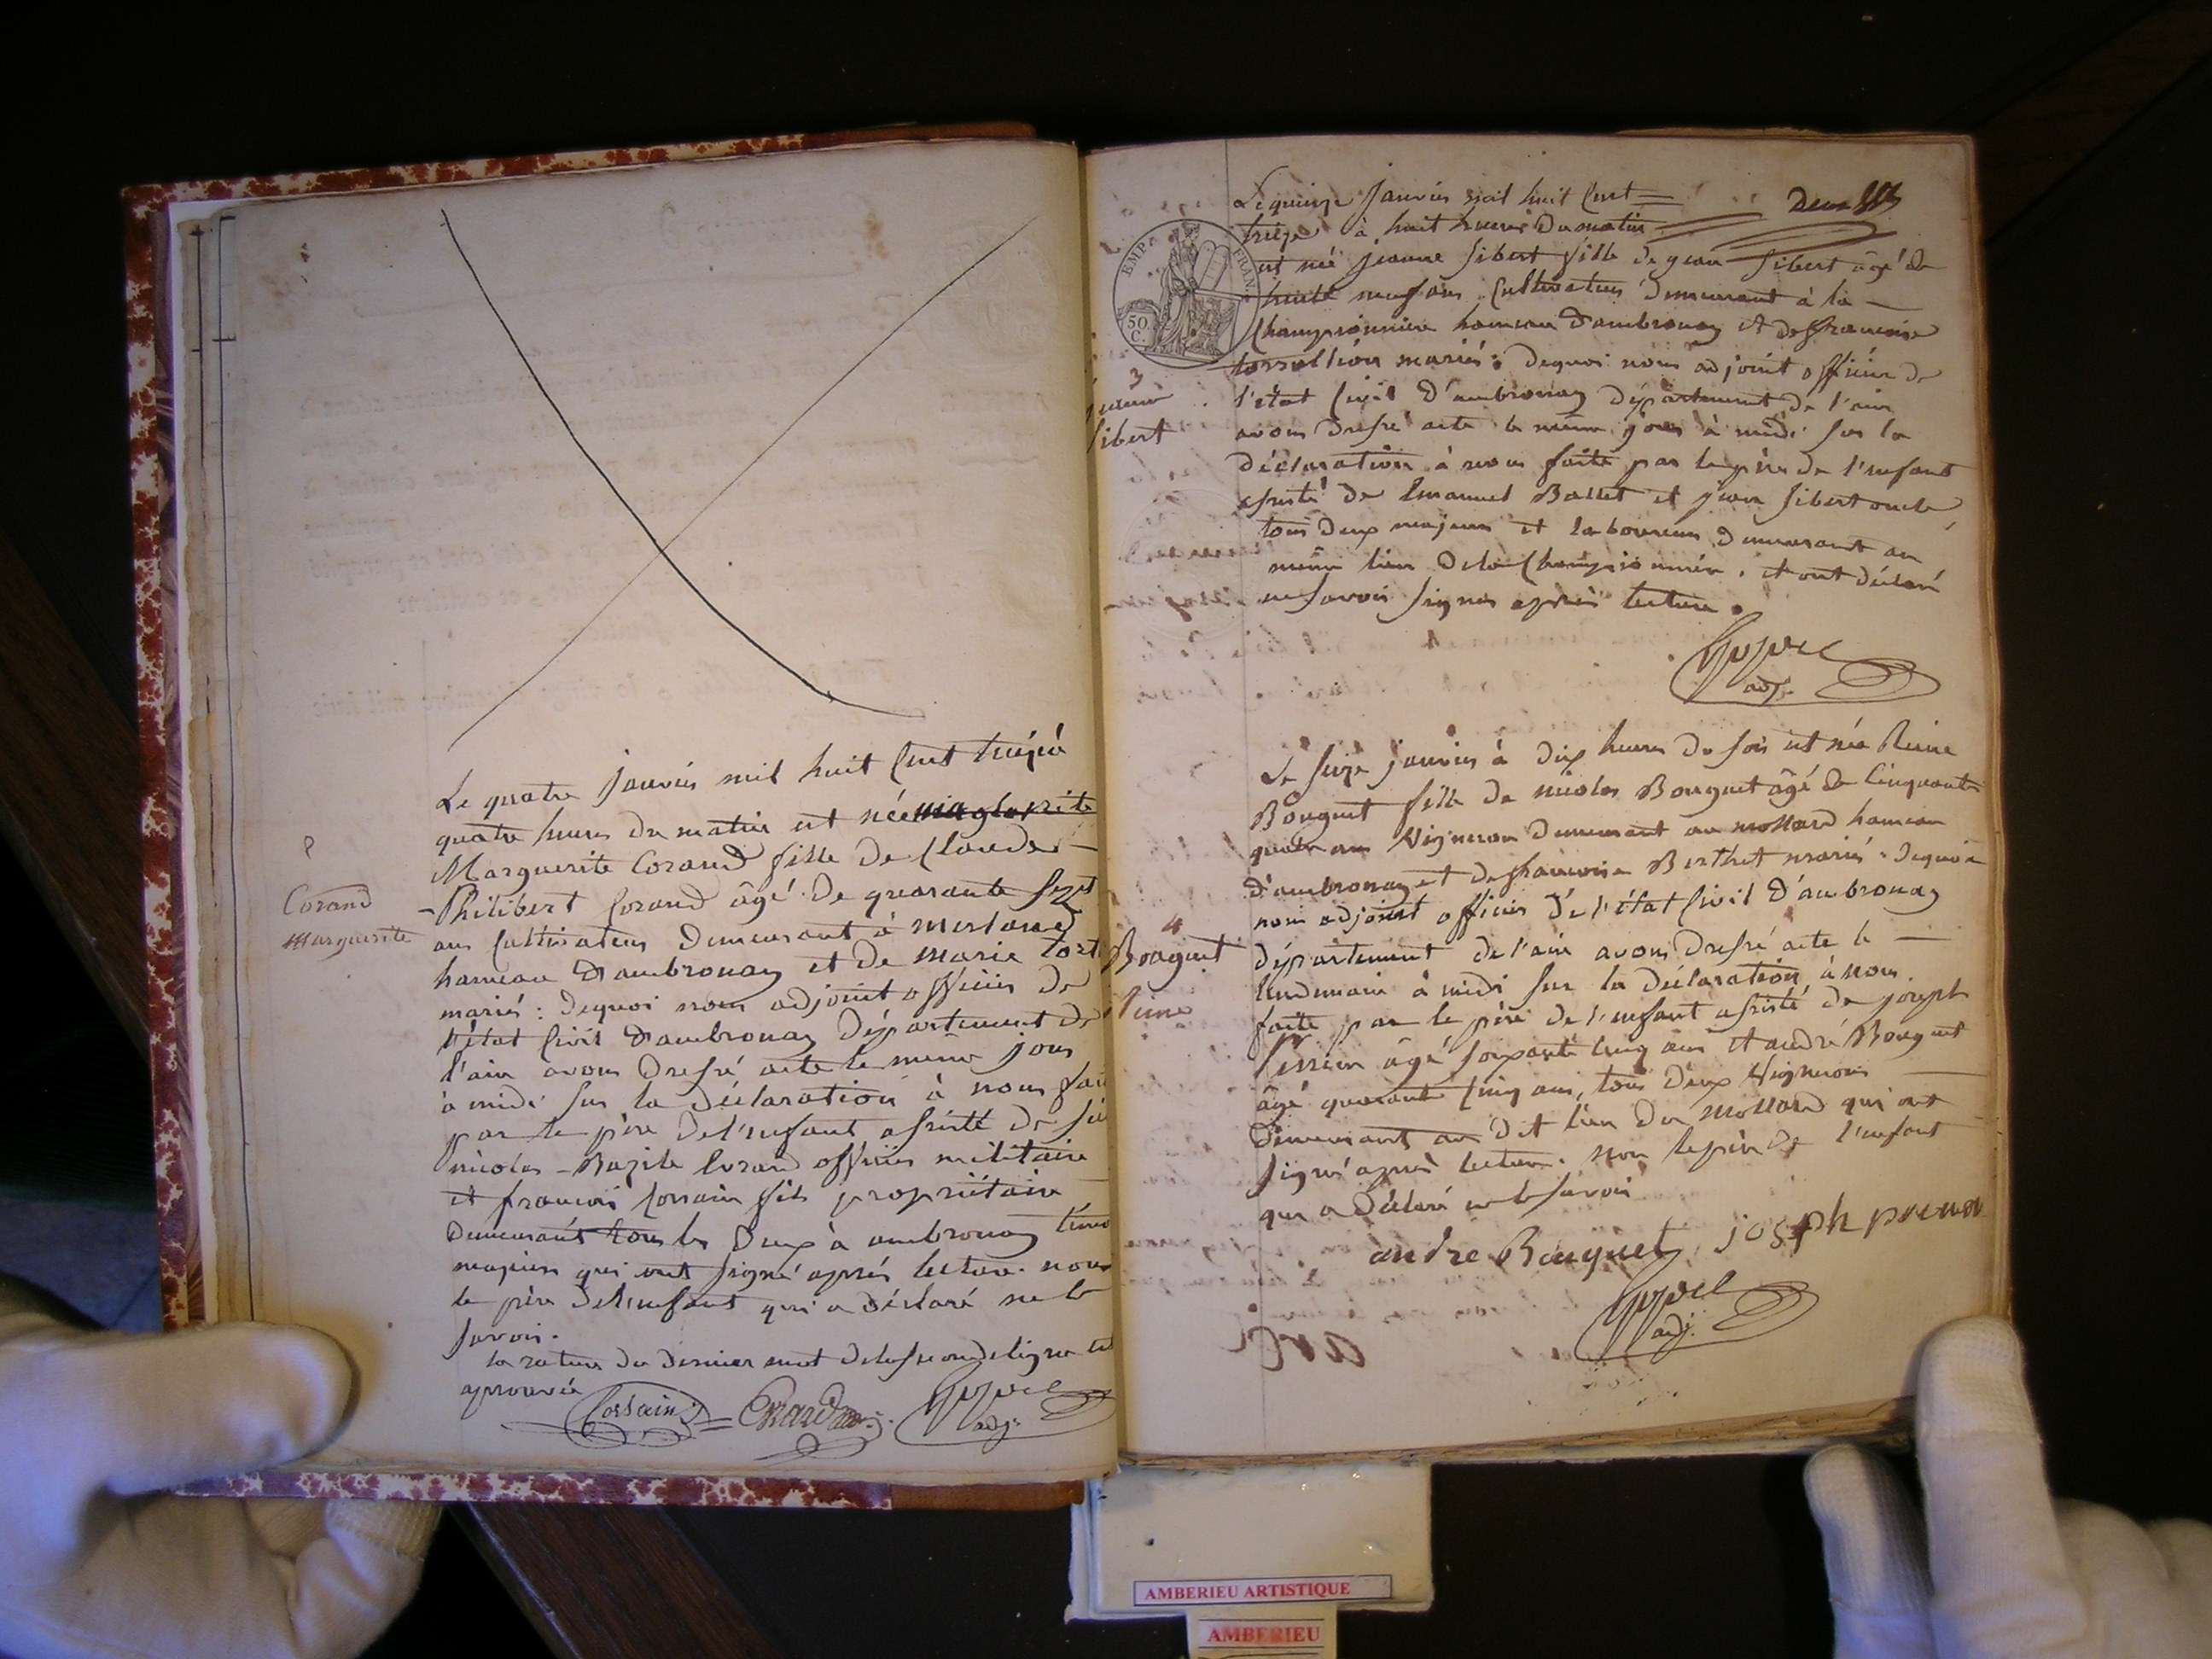 Le quatre janvier mil huit Cent treize à
quatre heures du matin est née
Marguerite Corand fille de Claude
Philibert Corand âgé de quarante sept
ans Cultivateur demeurant à merland
hameau d'ambronay et de marie
mariés : dequoi nous adjoint officier de
l'état Civil d'ambronay département de
l'ain avons dressé acte le même jour
à midi sur la déclaration à nous
par le père de l'enfant assisté de
nicolas Bazile Corand officier militaire
et francois Corsain fils propriétaire
demeurant tous les deux à ambronay
majeurs qui ont signé après lecture. non
le père de l'enfant qui a déclaré ne le
savoir.
la rature du dernier mot de la seconde ligne est
aprouvée
Corsain
adj.
Corand
marguerite
Le quinze janvier mil huit Cent
treize à huit heures du matin
est née jeanne Sibert fille de jean Sibert âgé de
neuf ans Cultivateur demeurant à la
Championnière hameau d'ambronay et de francoise
mariés : dequoi nous adjoint officier de
l'état Civil d'ambronay département de l'ain
avons dressé acte le même jour à midi sur la
déclaration à nous faite par le père de l'enfant
assisté de Emanuel Ballet et jean Sibert oncle
tous deux majeurs et laboureurs demeurant au
même lieu de la Championnière. et ont déclaré
ne savoir signer après lecture.
adj.
EMP. FRAN.
50 C.
3
Sibert
Le seize janvier à dix heures du soir est née Reine
Bouquet fille de nicolas Bouquet âgé de Cinquante
quatre ans Vigneron demeurant au mollard hameau
d'ambronay et de francoise Berthet mariés : dequoi
nous adjoint officier de l'état Civil d'ambronay
département de l'ain avons dressé acte le
lendemain à midi sur la déclaration à nous
faite par le père de l'enfant assisté de joseph
âgé soixante cinq ans et andré Bouquet
âgé quarante Cinq ans, tous deux Vignerons
demeurant au dit lieu du mollard qui ont
signé après lecture. non le père de l'enfant
qui a déclaré ne le savoir
andre Bouquet joseph
adj.
4
Bouquet
Reine
AMBERIEU ARTISTIQUE
AMBERIEU